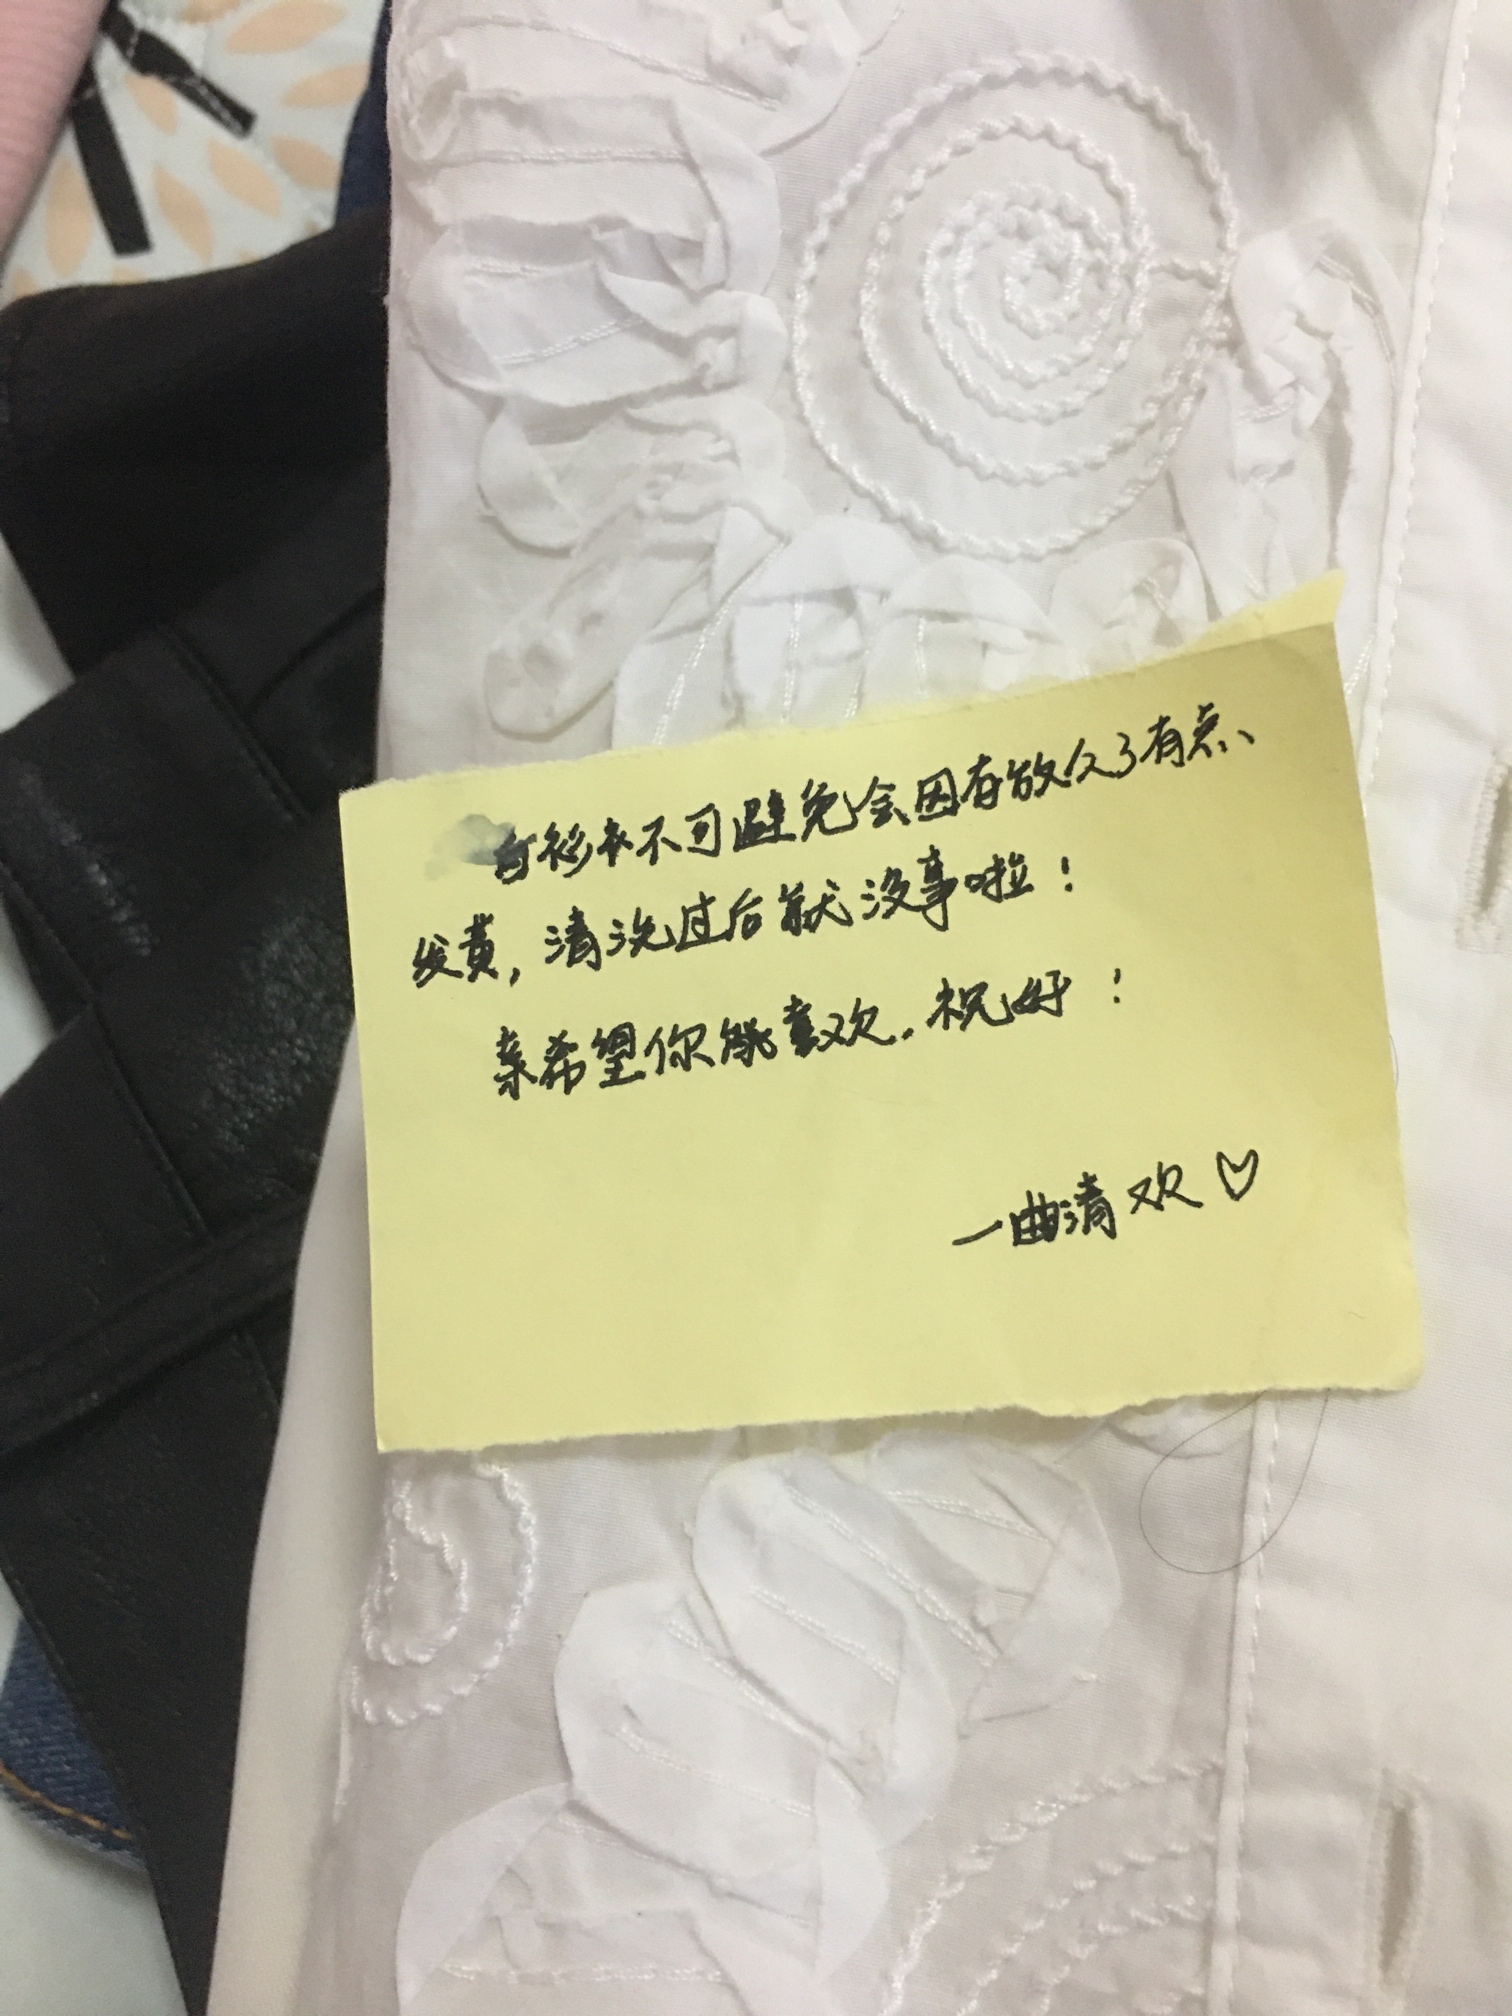 白衫本不可避免会因存放久了有点、
发黄，清洗过后就没事啦！
亲希望你能喜欢，祝好！
一曲清欢♡